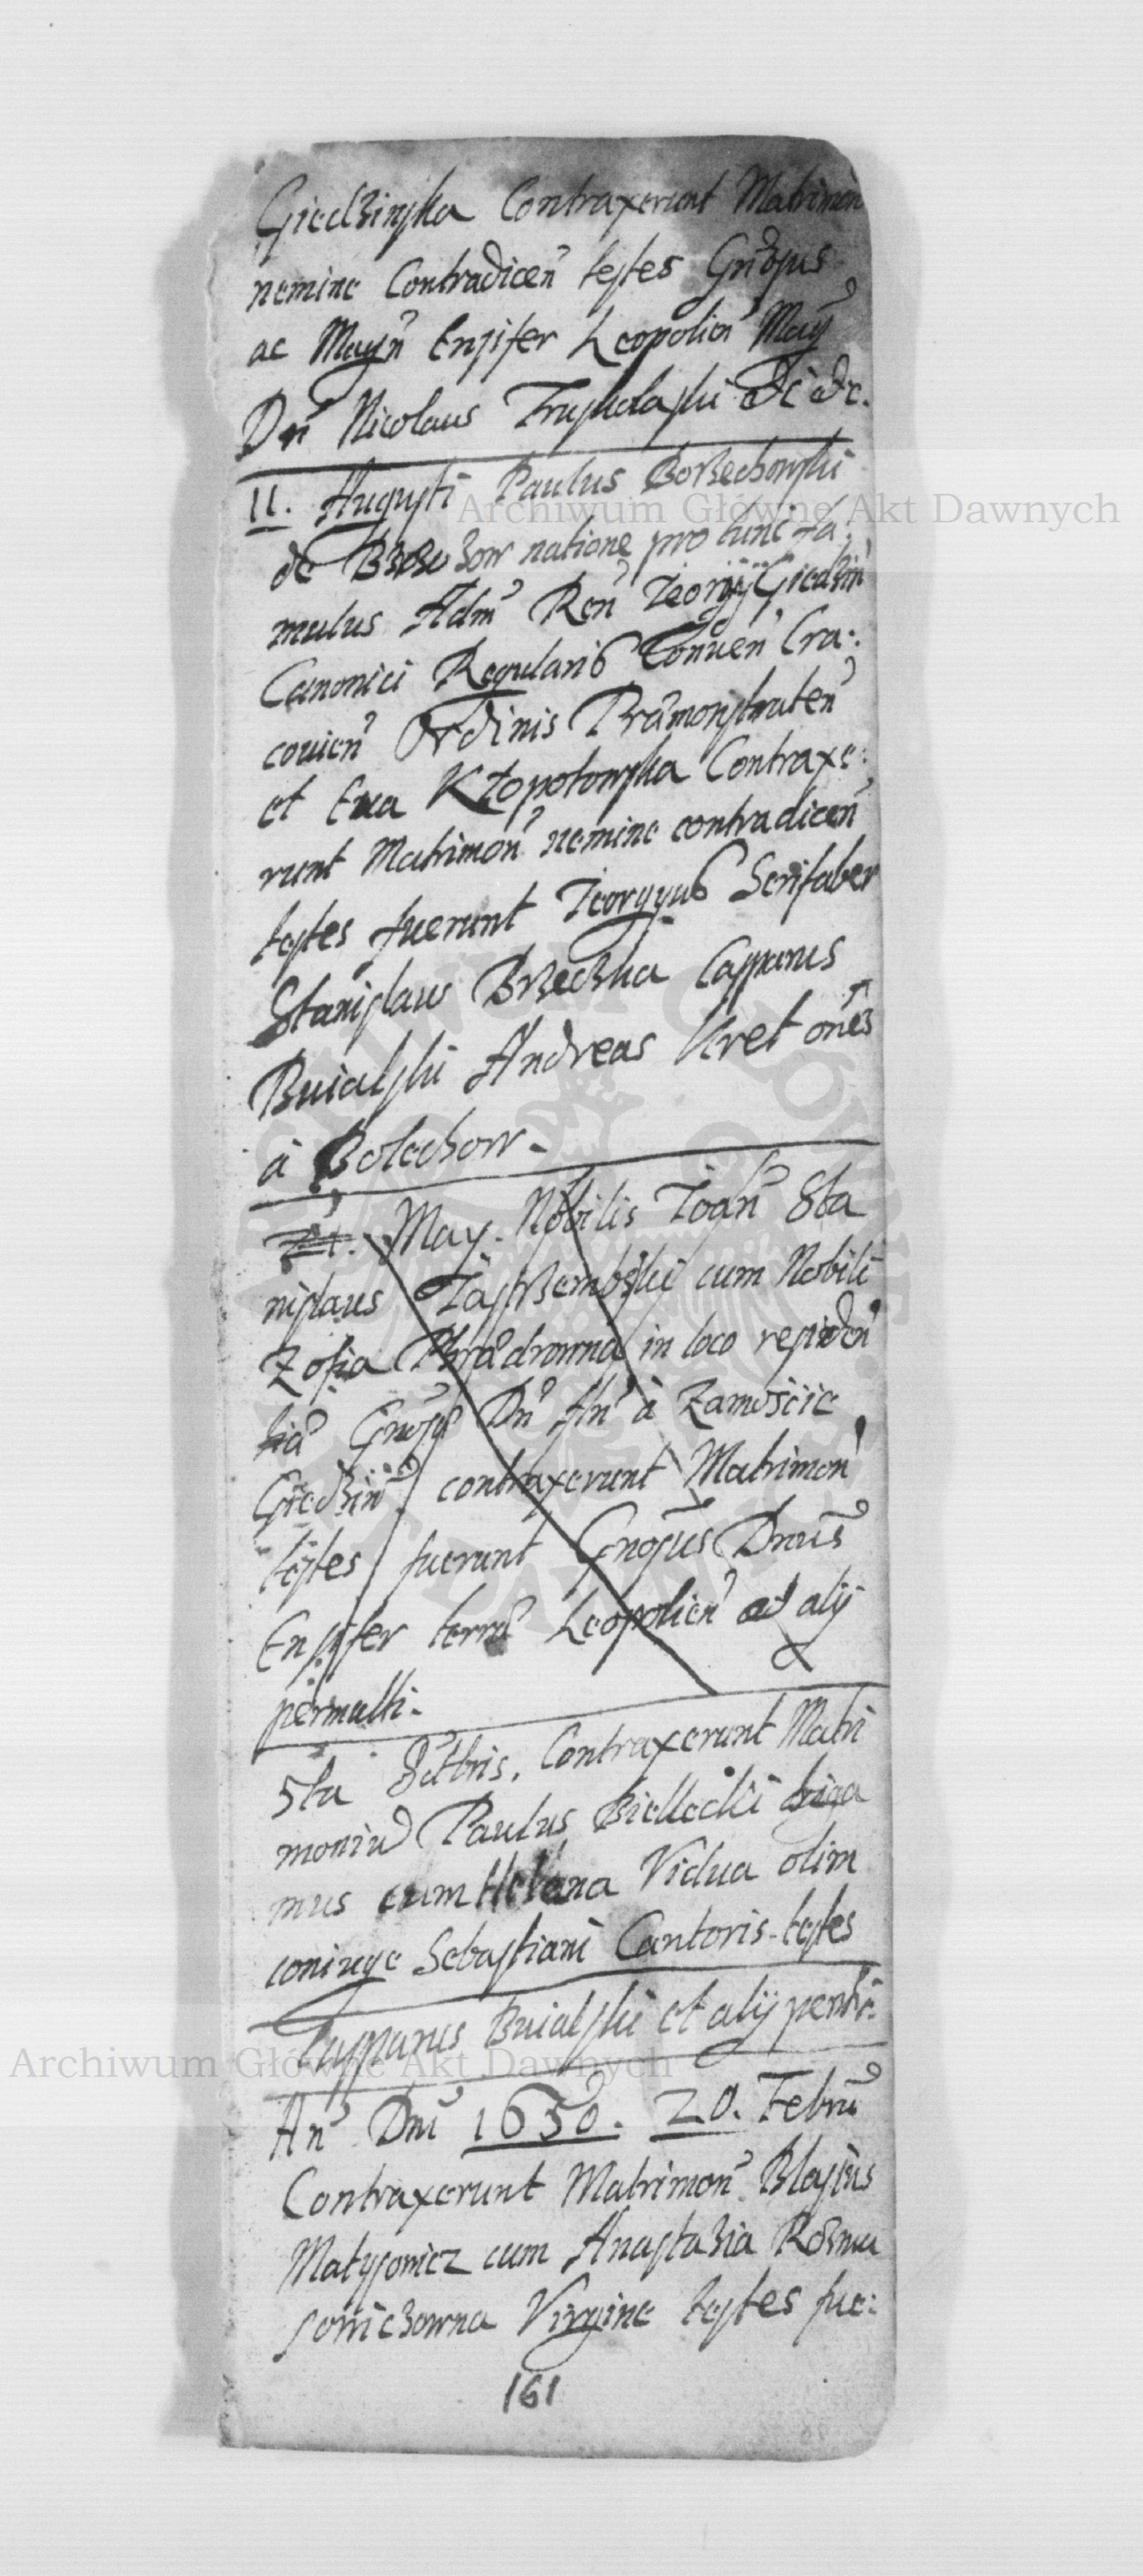 Giedzinska Contraxerunt Matrimon
nemine Contradicen testes Gnosus
ac Magn Ensifer Leopolien Mag
Dn Nicolaus Truskolaski &c &c.
11. Augusti Paulus Borzechowski
de natione pro tunc fa:
mulus Adm Ren Georgij Giedzin
Canonici Regularis Conuen Cra:
couien Ordinis Præmonstraten
et Eua Kłopotowska Contraxe:
runt Matrimon nemine contradicen
testes fuerunt Georgyus Serifaber
Stanislaus Brzezka Casparus
Buialski Andreas Kret omes
à Bolechow.
May. Nobilis Joan Sta
nislaus Jastrzembski cum Nobili
Zofia in loco residen
tia Gnosi Dn An à Zamoscie
Giedzin contraxerunt Matrimon
testes fuerunt Gnosus Dnus
Ensifer terræ Leopolien ac alij
permulti.
5ta 8ctbris. Contraxerunt Matri
moniu Paulus Biellecki biga
mus cum Helena Vidua olim
coniuge Sebastiani Cantoris. testes
Casparus Buialski et alij
An Dni 1650. 20. Febru
Contraxerunt Matrimon Blasius
Matysowicz cum Anastazia Rozma
sowiczowna Virgine testes fue:
161
Archiwum Główne Akt Dawnych
Archiwum Główne Akt Dawnych